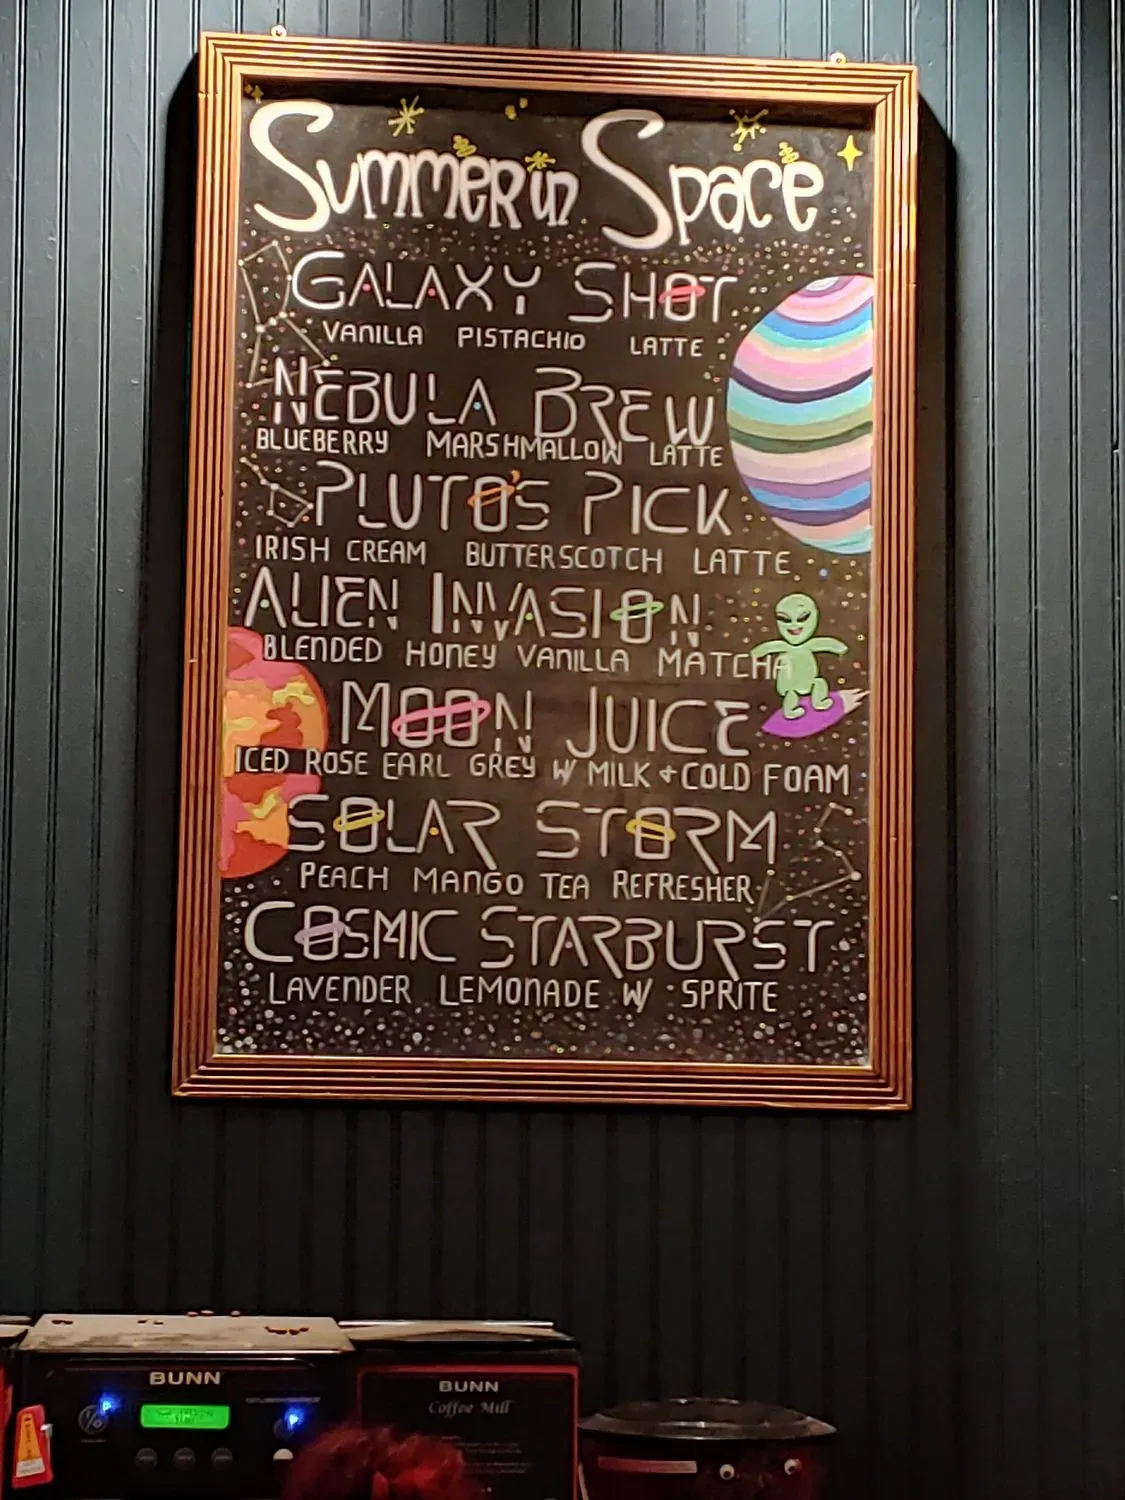 Summer in Space
GALAXY SHOT
VANILLA PISTACHIO LATTE
NEBULA BREW
BLUEBERRY MARSHMALLOW LATTE
PLUTO'S PICK
IRISH CREAM BUTTERSCOTCH LATTE
ALIEN INVASION
BLENDED HONEY VANILLA MATCHA
MOON JUICE
ICED ROSE EARL GREY W/ MILK + COLD FOAM
SOLAR STORM
PEACH MANGO TEA REFRESHER
COSMIC STARBURST
LAVENDER LEMONADE W/ SPRITE
BUNN
BUNN
Coffee Mill